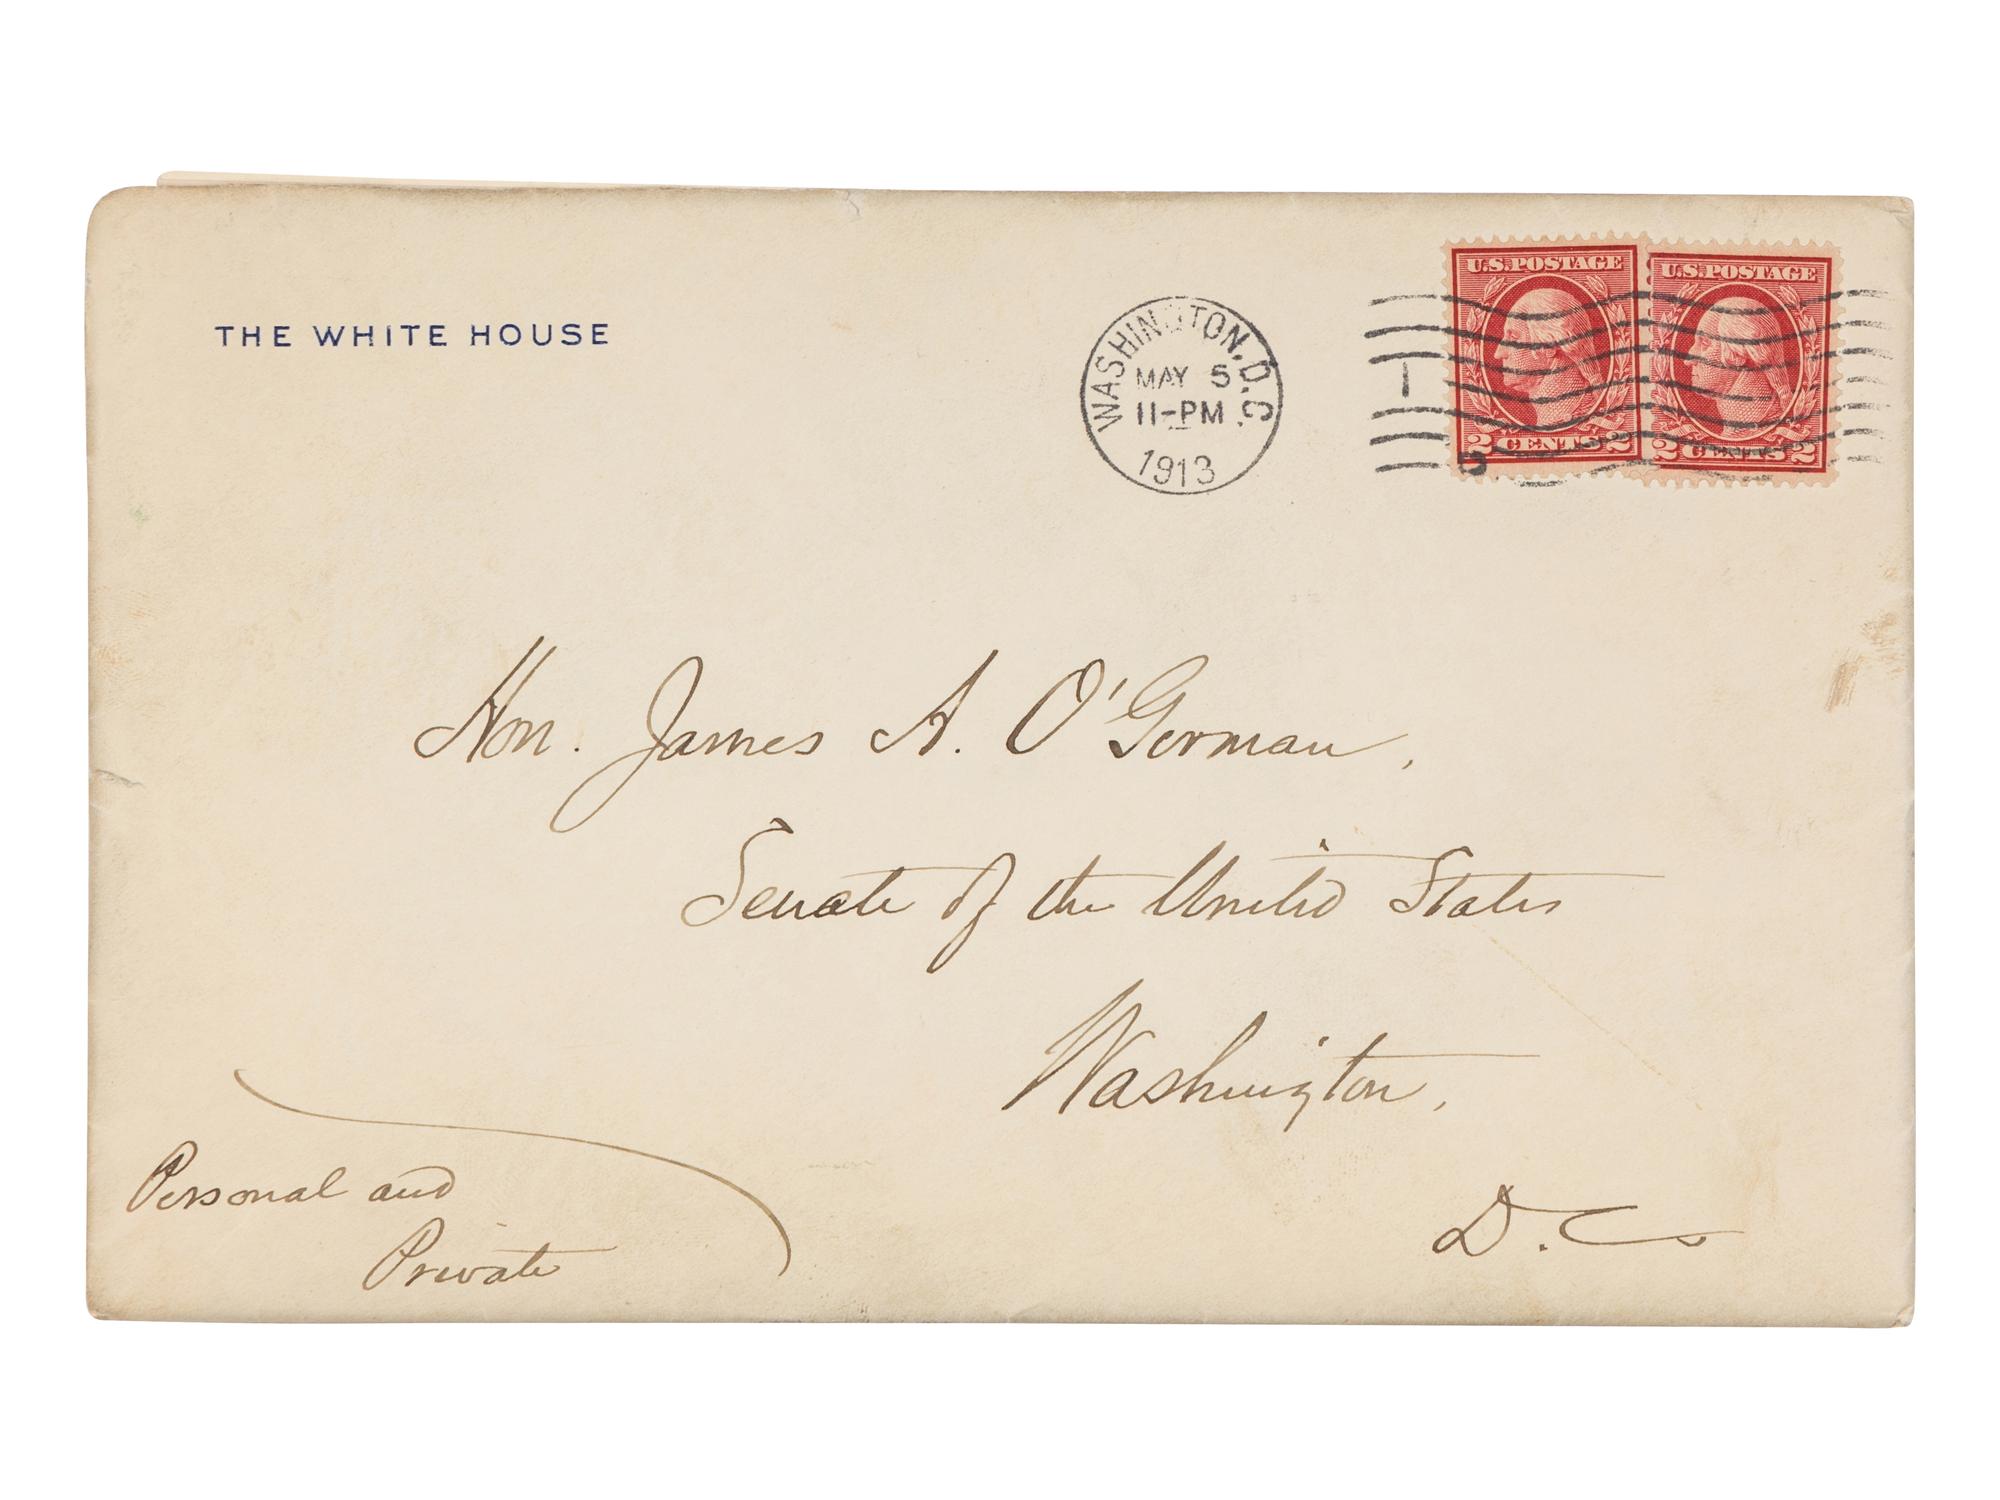 THE WHITE HOUSE
WASHINGTON, D.C.
MAY 5
11-PM
1913
1
U.S. POSTAGE
2 CENTS 2
U.S. POSTAGE
2 CENTS 2
Hon. James A. O'Gorman,
Senate of the United States
Washington,
D.C.
Personal and
Private